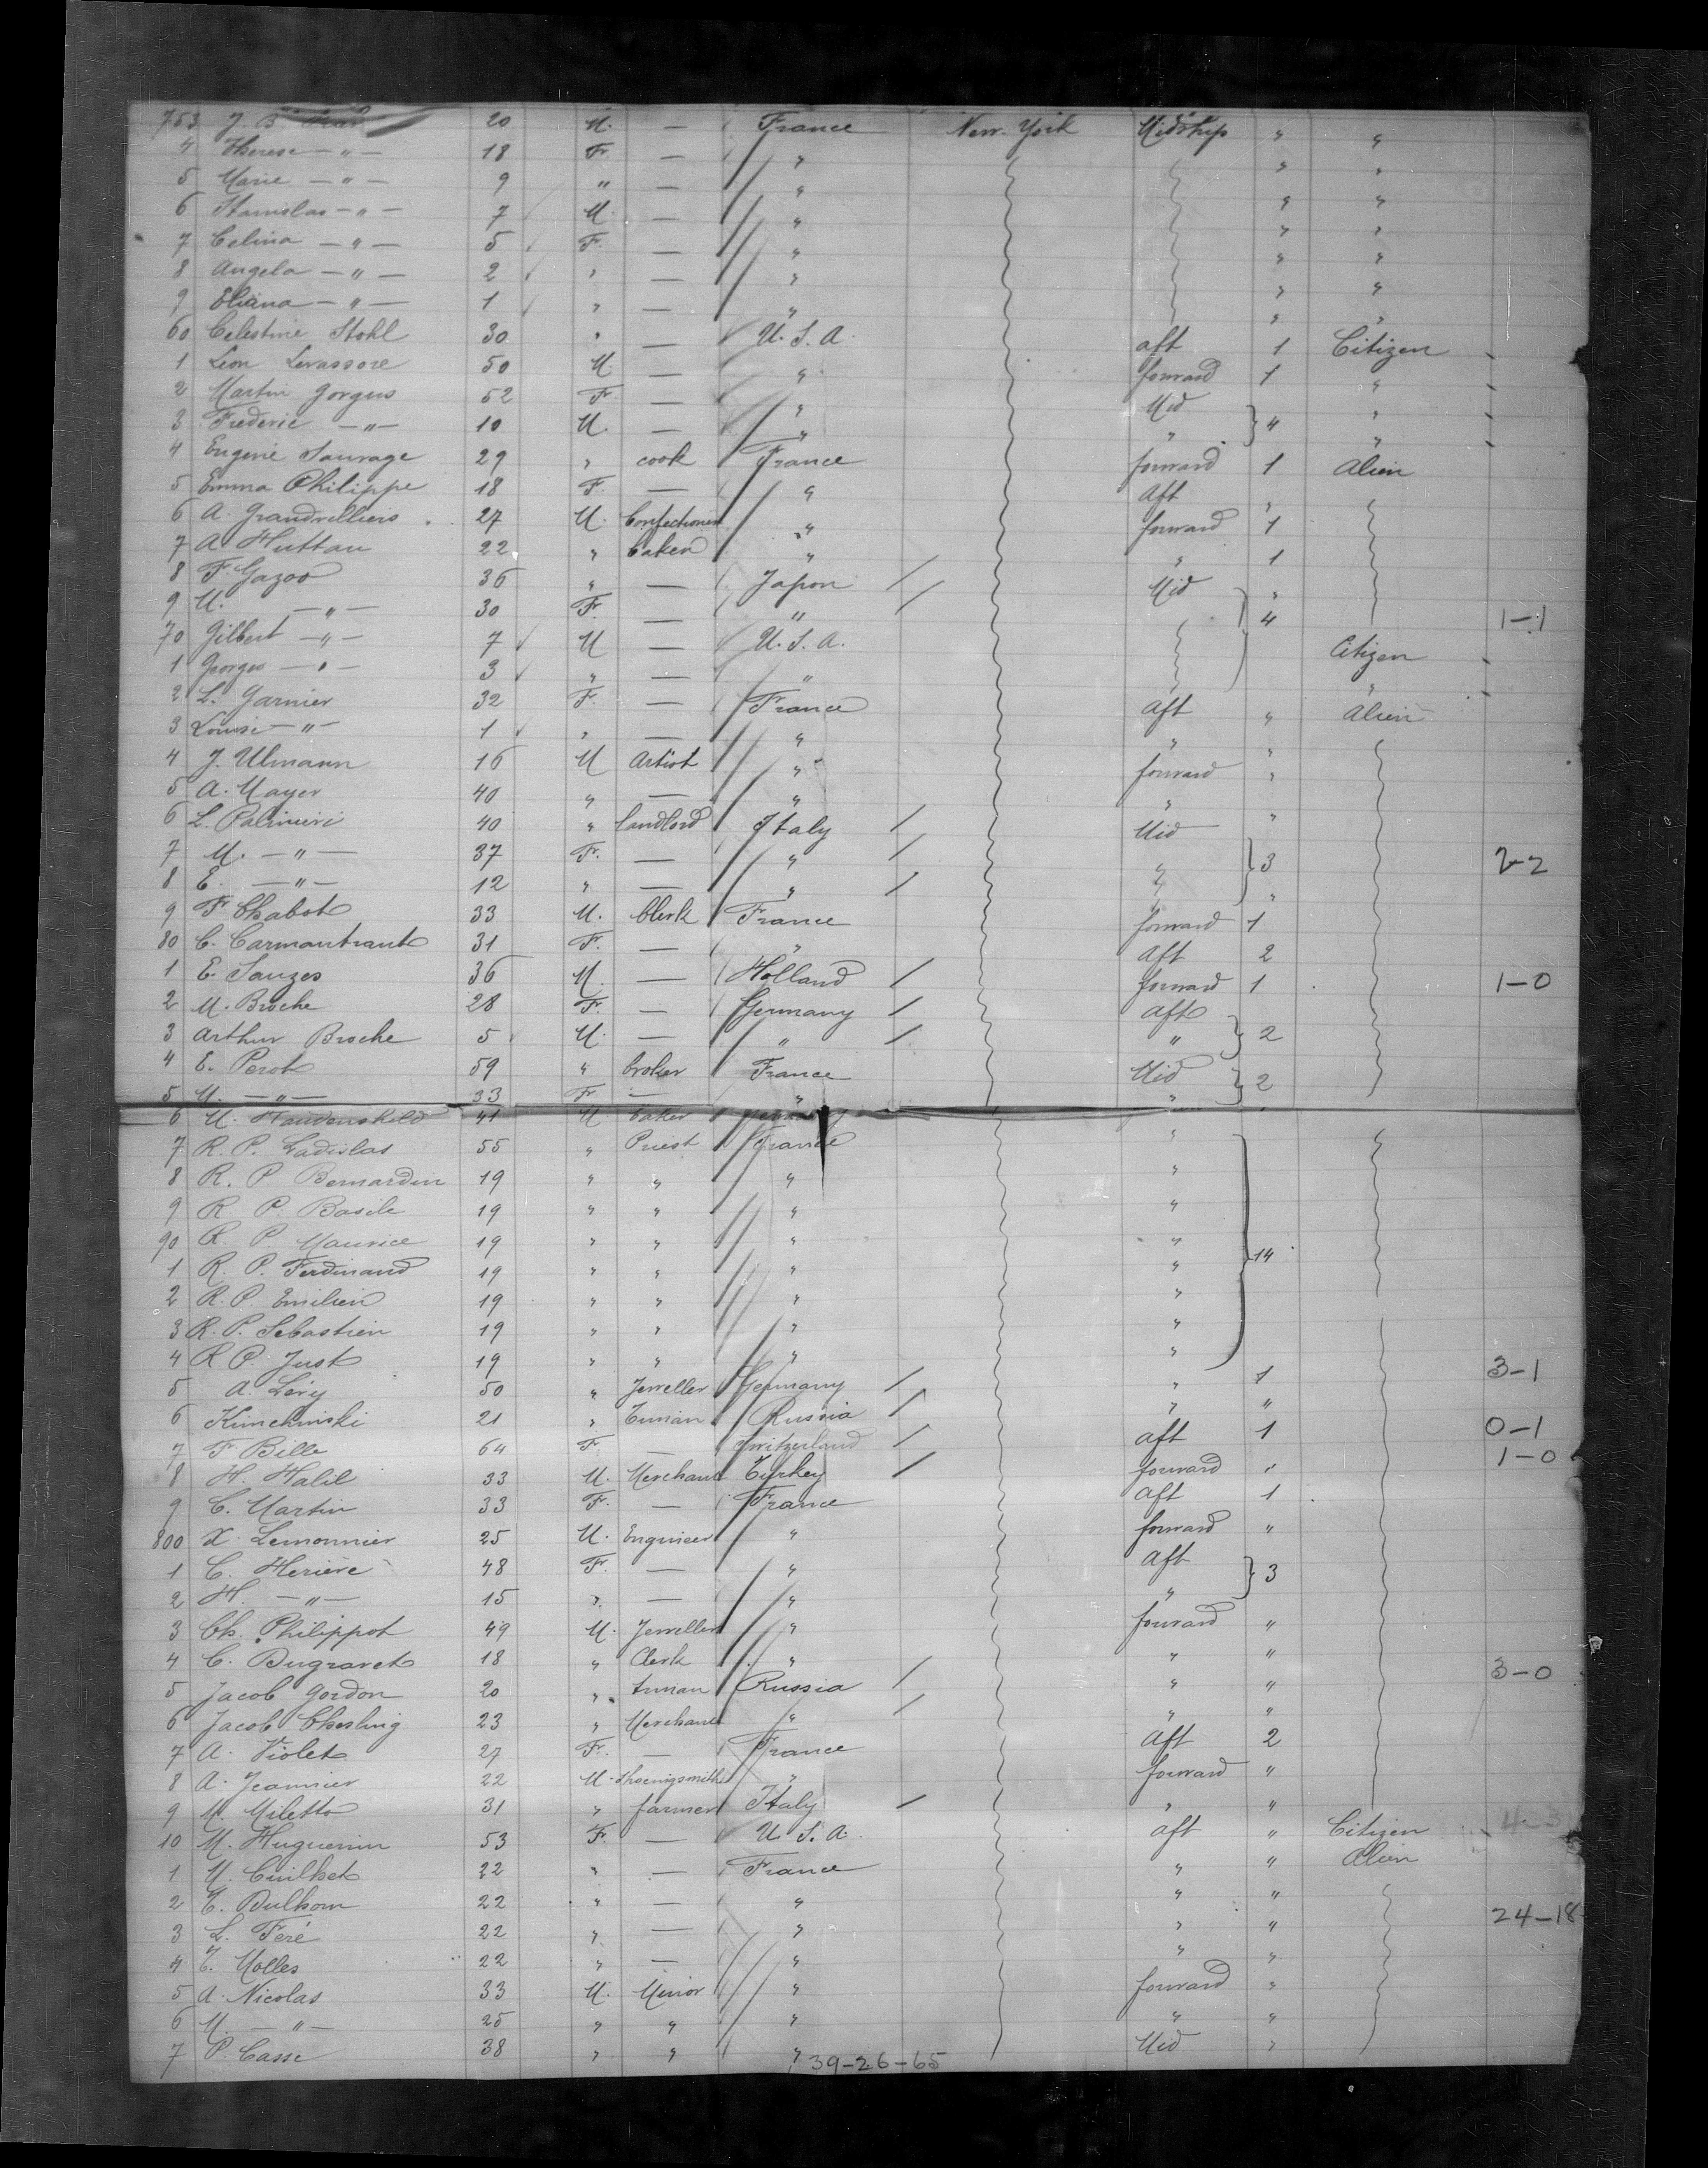 753 J. B. 20 M. — France New-York Midship " "
4 Therese — " — 18 Fr — " " "
5 Marie — " — 9 " — " " "
6 Stanislas — " — 7 M. — " " "
7 Celina — " — 5 F. — " " "
8 Angela — " — 2 " — " " "
9 Eliana — " — 1 " — " " "
60 Celestine Stohl 30 " — U. S. A. aft 1 Citizen
1 Leon Levassore 50 M — " forward 1 "
2 Martin Gorgus 52 Fr. — " Mid "
3 Frederic — " — 10 M. — " " 4 "
4 Eugene Sauvage 29 " cook France forward 1 Alien
5 Emma Philippe 18 F. — " Aft "
6 A. Grandvilliers 27 M. Confectioner " forward 1
7 A Huttau 22 " baker " " 1
8 F. Gazoo 36 " — Japon Mid "
9 M. — " — 30 Fr. — " 4 1-1
70 Gilbert — " — 7 M — U. S. A. Citizen
1 Georges — " — 3 " — " "
2 L. Garnier 32 F. — France aft " Alien
3 Louise — " — 1 " — " " "
4 J. Ulmann 16 M Artist " forward "
5 A. Mayer 40 " — " " "
6 L. Palmieri 40 " landlord Italy Mid
7 M. — " — 37 Fr. — " " 3 2-2
8 E. — " — 12 " — " " "
9 F. Chabot 33 M. Clerk France forward 1
80 C. Carmantrant 31 F. — " aft 2
1 E. Sauzes 36 M. — Holland forward 1 1-0
2 M. Broche 28 F. — Germany aft
3 Arthur Broche 5 M. — " " 2
4 E. Perot 59 " broker France Mid 2
5 M. — " — 33 Fr — " "
6 M. Haudenshild 41 M baker
7 R. P. Ladislas 55 " Priest France "
8 R. P. Bernardin 19 " " " "
9 R. P. Basile 19 " " " "
90 R. P. Maurice 19 " " " "
1 R. P. Ferdinand 19 " " " " 14
2 R. P. Emilien 19 " " " "
3 R. P. Sebastien 19 " " " "
4 R P. Just 19 " " " "
5 A. Lévy 50 " Jeweller Germany " 1 3-1
6 Kimchinski 21 " Russia " "
7 F. Bille 64 F. — Switzerland aft 1 0-1
8 H. Halil 33 M. Merchant Turkey forward " 1-0
9 C. Martin 33 F. — France aft 1
800 X. Lemonnier 25 M. Engineer " forward "
1 C. Heriere 48 F. — " aft
2 H. — " — 15 " — " " 3
3 Ch. Philippot 49 M. Jeweller " forward "
4 C. Dugravet 18 " Clerk " " "
5 Jacob Gordon 20 " Russia " " 3-0
6 Jacob Chesling 23 " Merchant " " "
7 A. Violet 27 Fr. — France aft 2
8 A. Jeannier 22 M. " forward "
9 M. Miletto 31 " farmer Italy " "
10 M. Huguenin 53 F. — U. S. A. aft " Citizen
1 M. Cuilhet 22 " — France " " Alien
2 E. Dulhom 22 " — " " "
3 L. Féré 22 " — " " " 24-18
4 E. Molles 22 " — " " "
5 A. Nicolas 33 M. Minor " forward "
6 M. — " — 25 " " " " "
7 P. Casse 38 " " " Mid "
39-26-65